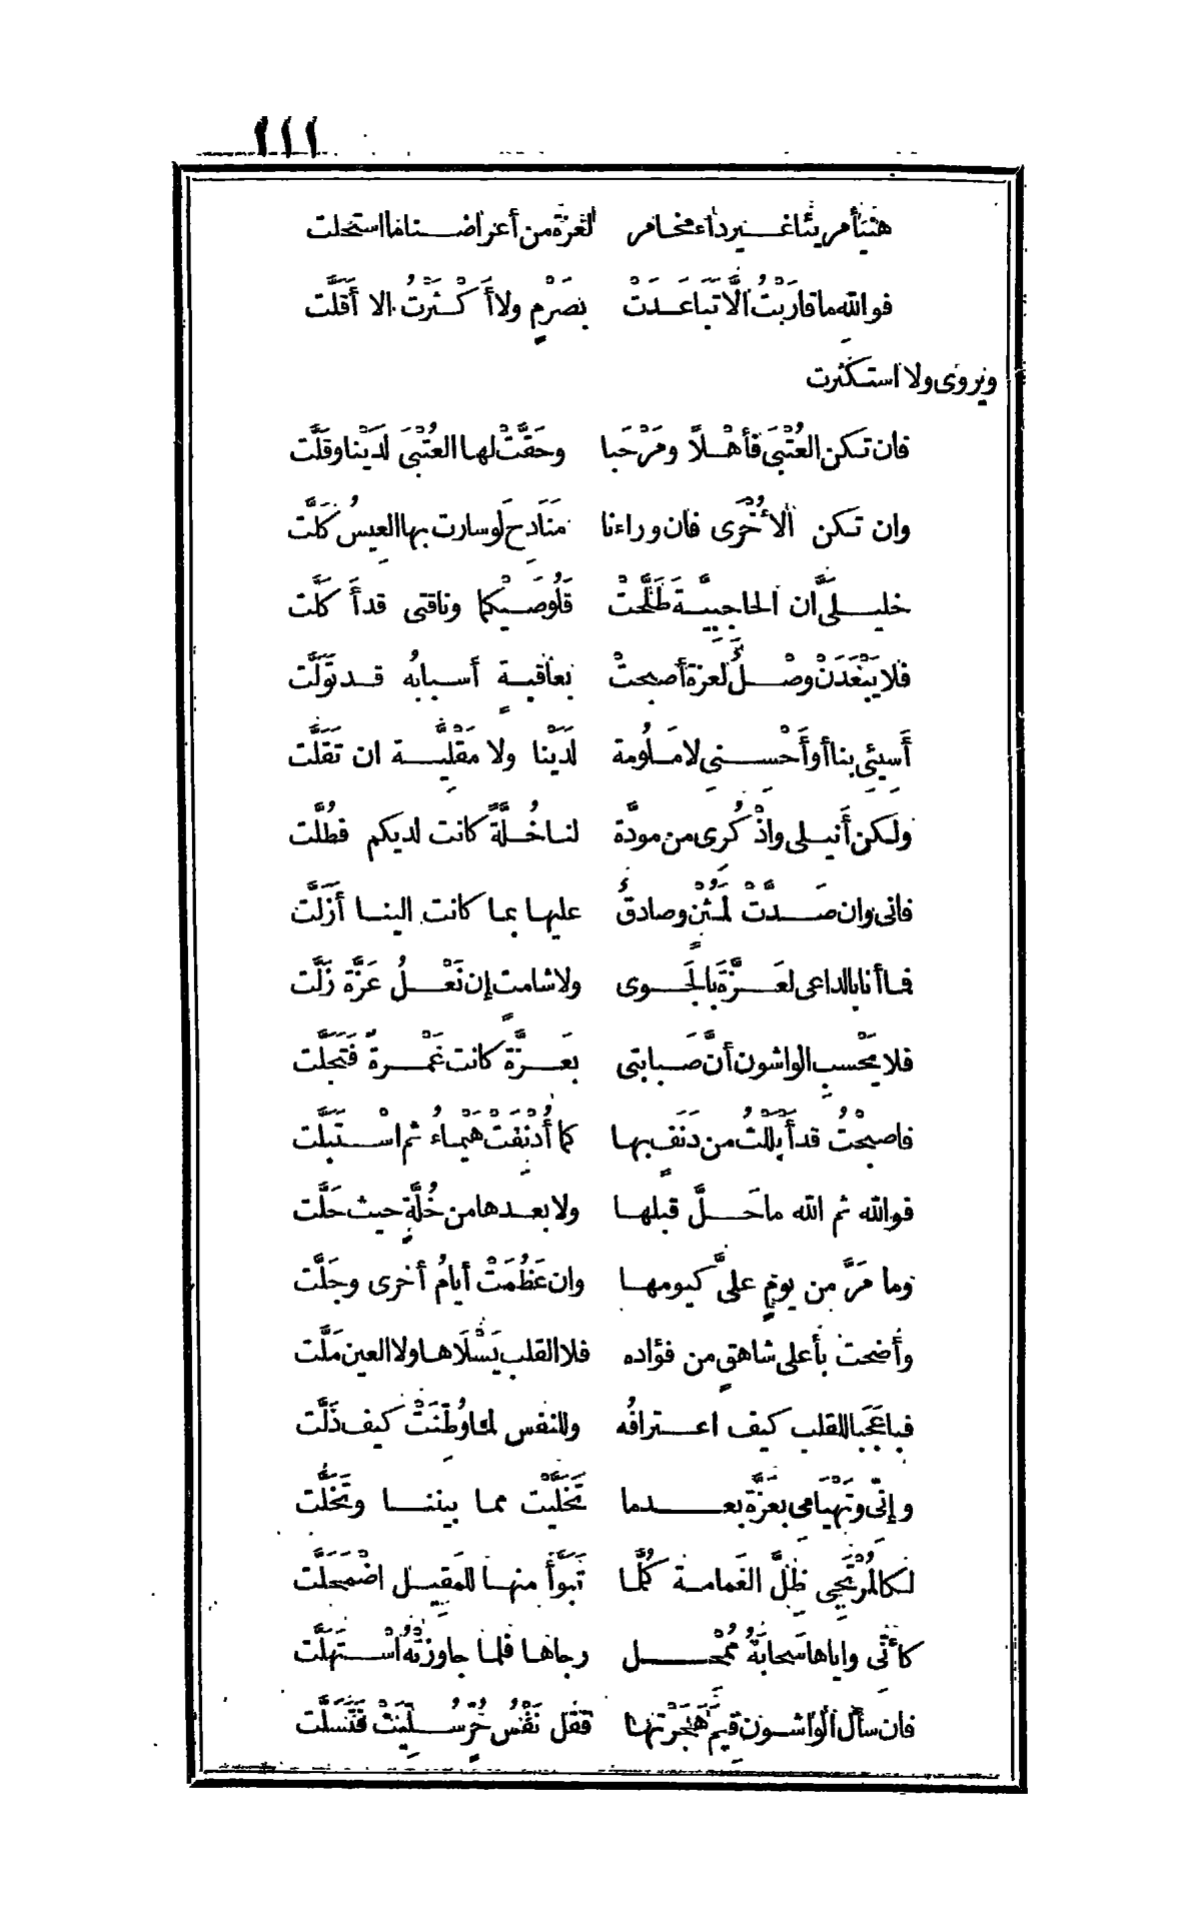 ١١١
هنيأ مريئا غير داء مخامر لعزة من أعراضنا ما استحلت
فوالله ما قارَبْتُ الَّا تَبَاعَدَتْ بصَرْمٍ ولا أَكْثَرْتُ الا أَقَلَّت
ويروى ولا استكثرت
فان تكن العُتْبَى فأهْلاً ومَرْحَبا وحَقَّتْ لها العُتْبَى لَدَيْنا وقَلَّت
وان تكن الأُخْرَى فان وراءنا مَنَادِح لو سارت بها العِيسُ كَلَّت
خليلىَّ ان الحاجبِيَّةَ طَلَّحَتْ قَلُوصَيْكما وناقتى قد أَكَلَّت
فلا يَبْعَدَنْ وصْلٌ لعزة أصبحتْ بعاقبةٍ أسبابُه قد تَوَلَّت
أَسِيئِى بنا أو أَحْسِنِى لا مَلُومة لَدَيْنا ولا مَقْلِيَّة ان تَقَلَّت
ولكن أَنيلى واذْكُرِى من مودَّة لنا خُلَّةً كانت لديكم فطُلَّت
فانى وان صَدَّتْ لَمُثْنٍ وصادقٌ عليها بما كانت الينا أزَلَّت
فما أنا بالداعى لعَزَّةَ بالجَوى ولا شامتٍ إن نَعْلُ عَزَّة زَلَّت
فلا يَحْسبِ الواشون أنَّ صَبابتى بعَزَّة كانت غَمْرةً فَتَجَلَّت
فاصبحْتُ قد أَبْلَلْتُ من دَنَفٍ بها كما أُدْنِفَتْ هَيْماءُ ثم اسْتَبَلَّت
فوالله ثم الله ما حَلَّ قبلها ولا بعدها من خُلَّةٍ حيث حَلَّت
وما مَرَّ من يومٍ علىَّ كيومها وان عَظُمَتْ أيامُ أخرى وجَلَّت
وأضحت بأعلى شاهقٍ من فؤاده فلا القلب يَسْلَاها ولا العين مَلَّت
فيا عَجَبا للقلب كيف اعترافُه وللنفس لما وُطِّنَتْ كيف ذَلَّت
وإنّى وتَهْيَامِى بعَزَّة بعدما تَخَلَّيْت مما بيننا وتَخَلَّت
لكالمُرْتَجِى ظِلَّ الغَمامة كُلَّما تَبَوَّأ منها للمَقِيل اضْمَحَلَّت
كأنّى واياها سَحابَةُ مُمْحِل رجاها فلما جاوزَتْهُ اسْتَهَلَّت
فان سأل الواشون فيمَ هَجَرْتها فقل نَفْسُ حُرٍّ سُلِّيَتْ فَتَسَلَّت